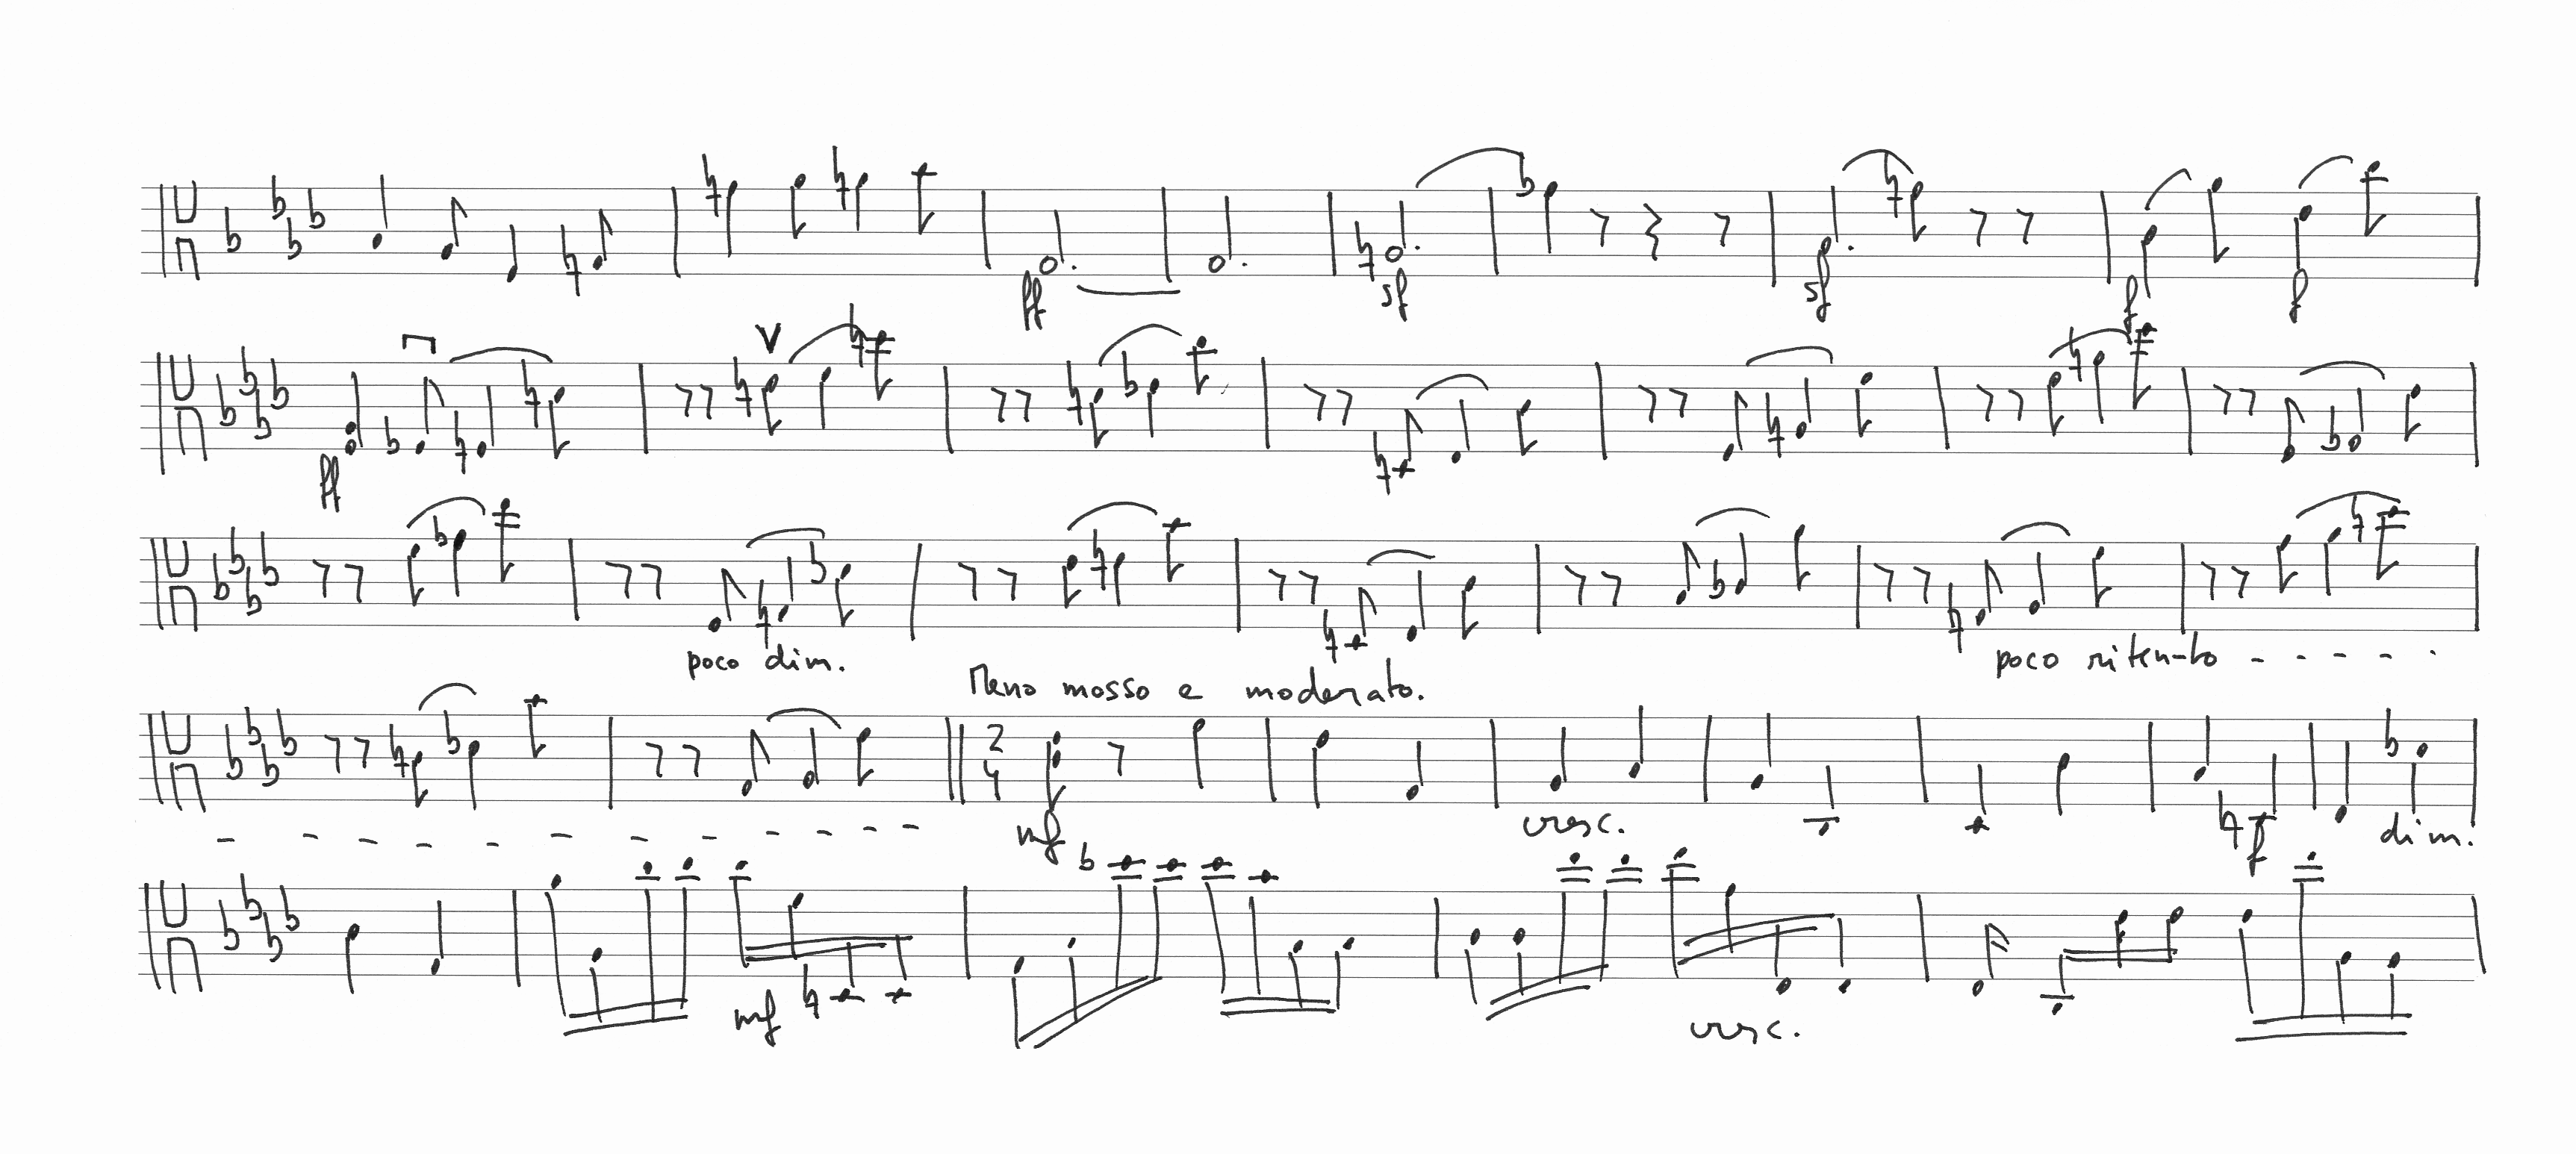 ff sf sf f f
ff
poco dim. poco riten-to - - - - -
Meno mosso e moderato.
2
4
mf cresc. f dim.
mf cresc.